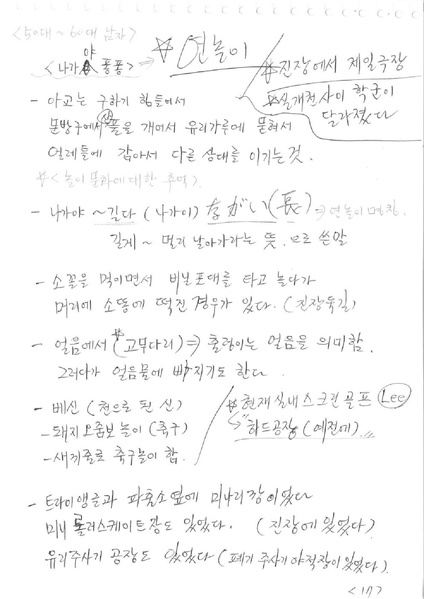 <50대 ~ 60대 남자>
야
<나가 퐁퐁>
☆ 연놀이
☆ 진장에서 제일극장
☆ 실개천사이 학군이
달라졌다
- 아교는 구하기 힘들어서
문방구에서 풀을 개어서 유리가루에 묻혀서
얼레들에 감아서 다른 상대를 이기는것.
☆<놀이 문화에 대한 추억>
- 나가야 ~ 길다 (나가이) ながい(長) ⇒ 연놀이
길게 ~ 멀리 날아가라는 뜻. 으로 쓴말
- 소꼴을 먹이면서 비닐포대를 타고 놀다가
머리에 소똥에 떡진 경우가 있다. (진장둑길)
- 얼음에서 (고무다리) ⇒ 출렁이는 얼음을 의미함.
그러다가 얼음물에 빠지기도 한다.
- 베신 (천으로 된 신)
- 돼지오줌보 놀이 (축구)
- 새끼줄로 축구놀이 함.
☆ 현재 실내 스크린 골프 Lee
"하드공장 (예전에)"
- 트라이앵글과 파출소옆에 미나리깡이있었다
미니 롤러스케이트장도 있었다. (진장에 있었다)
유리주사기 공장도 있었다 (폐기 주사기 야적장이 있었다)
<17>